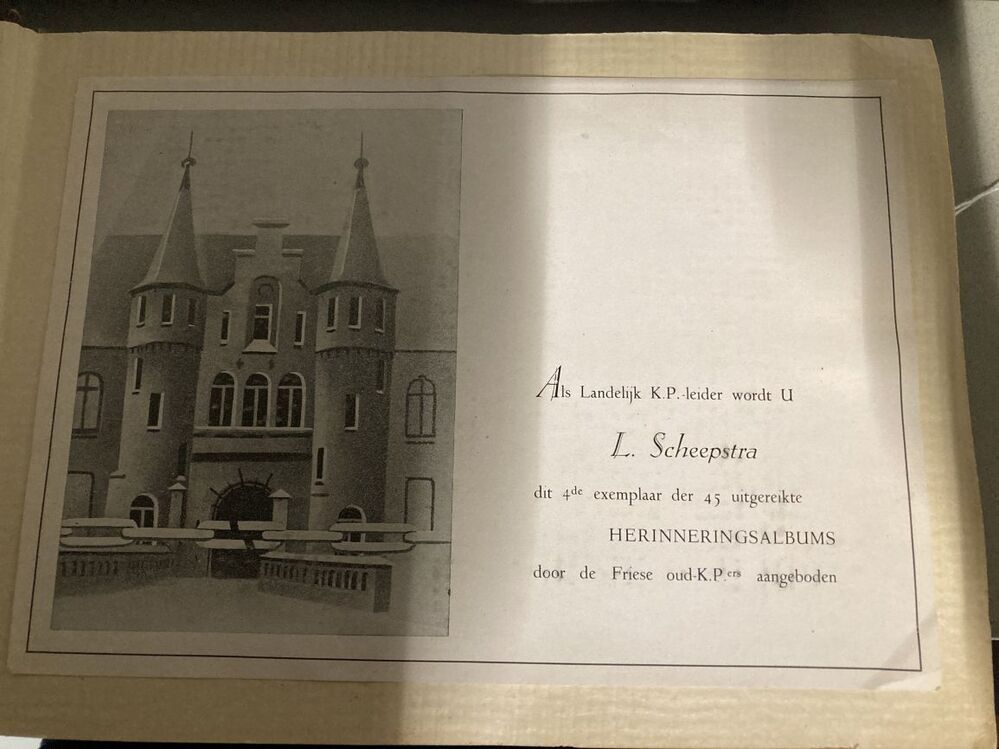 Als Landelijk K.P.-leider wordt U
L. Scheepstra
dit 4de exemplaar der 45 uitgereikte
HERINNERINGSALBUMS
door de Friese oud-K.P.ers aangeboden